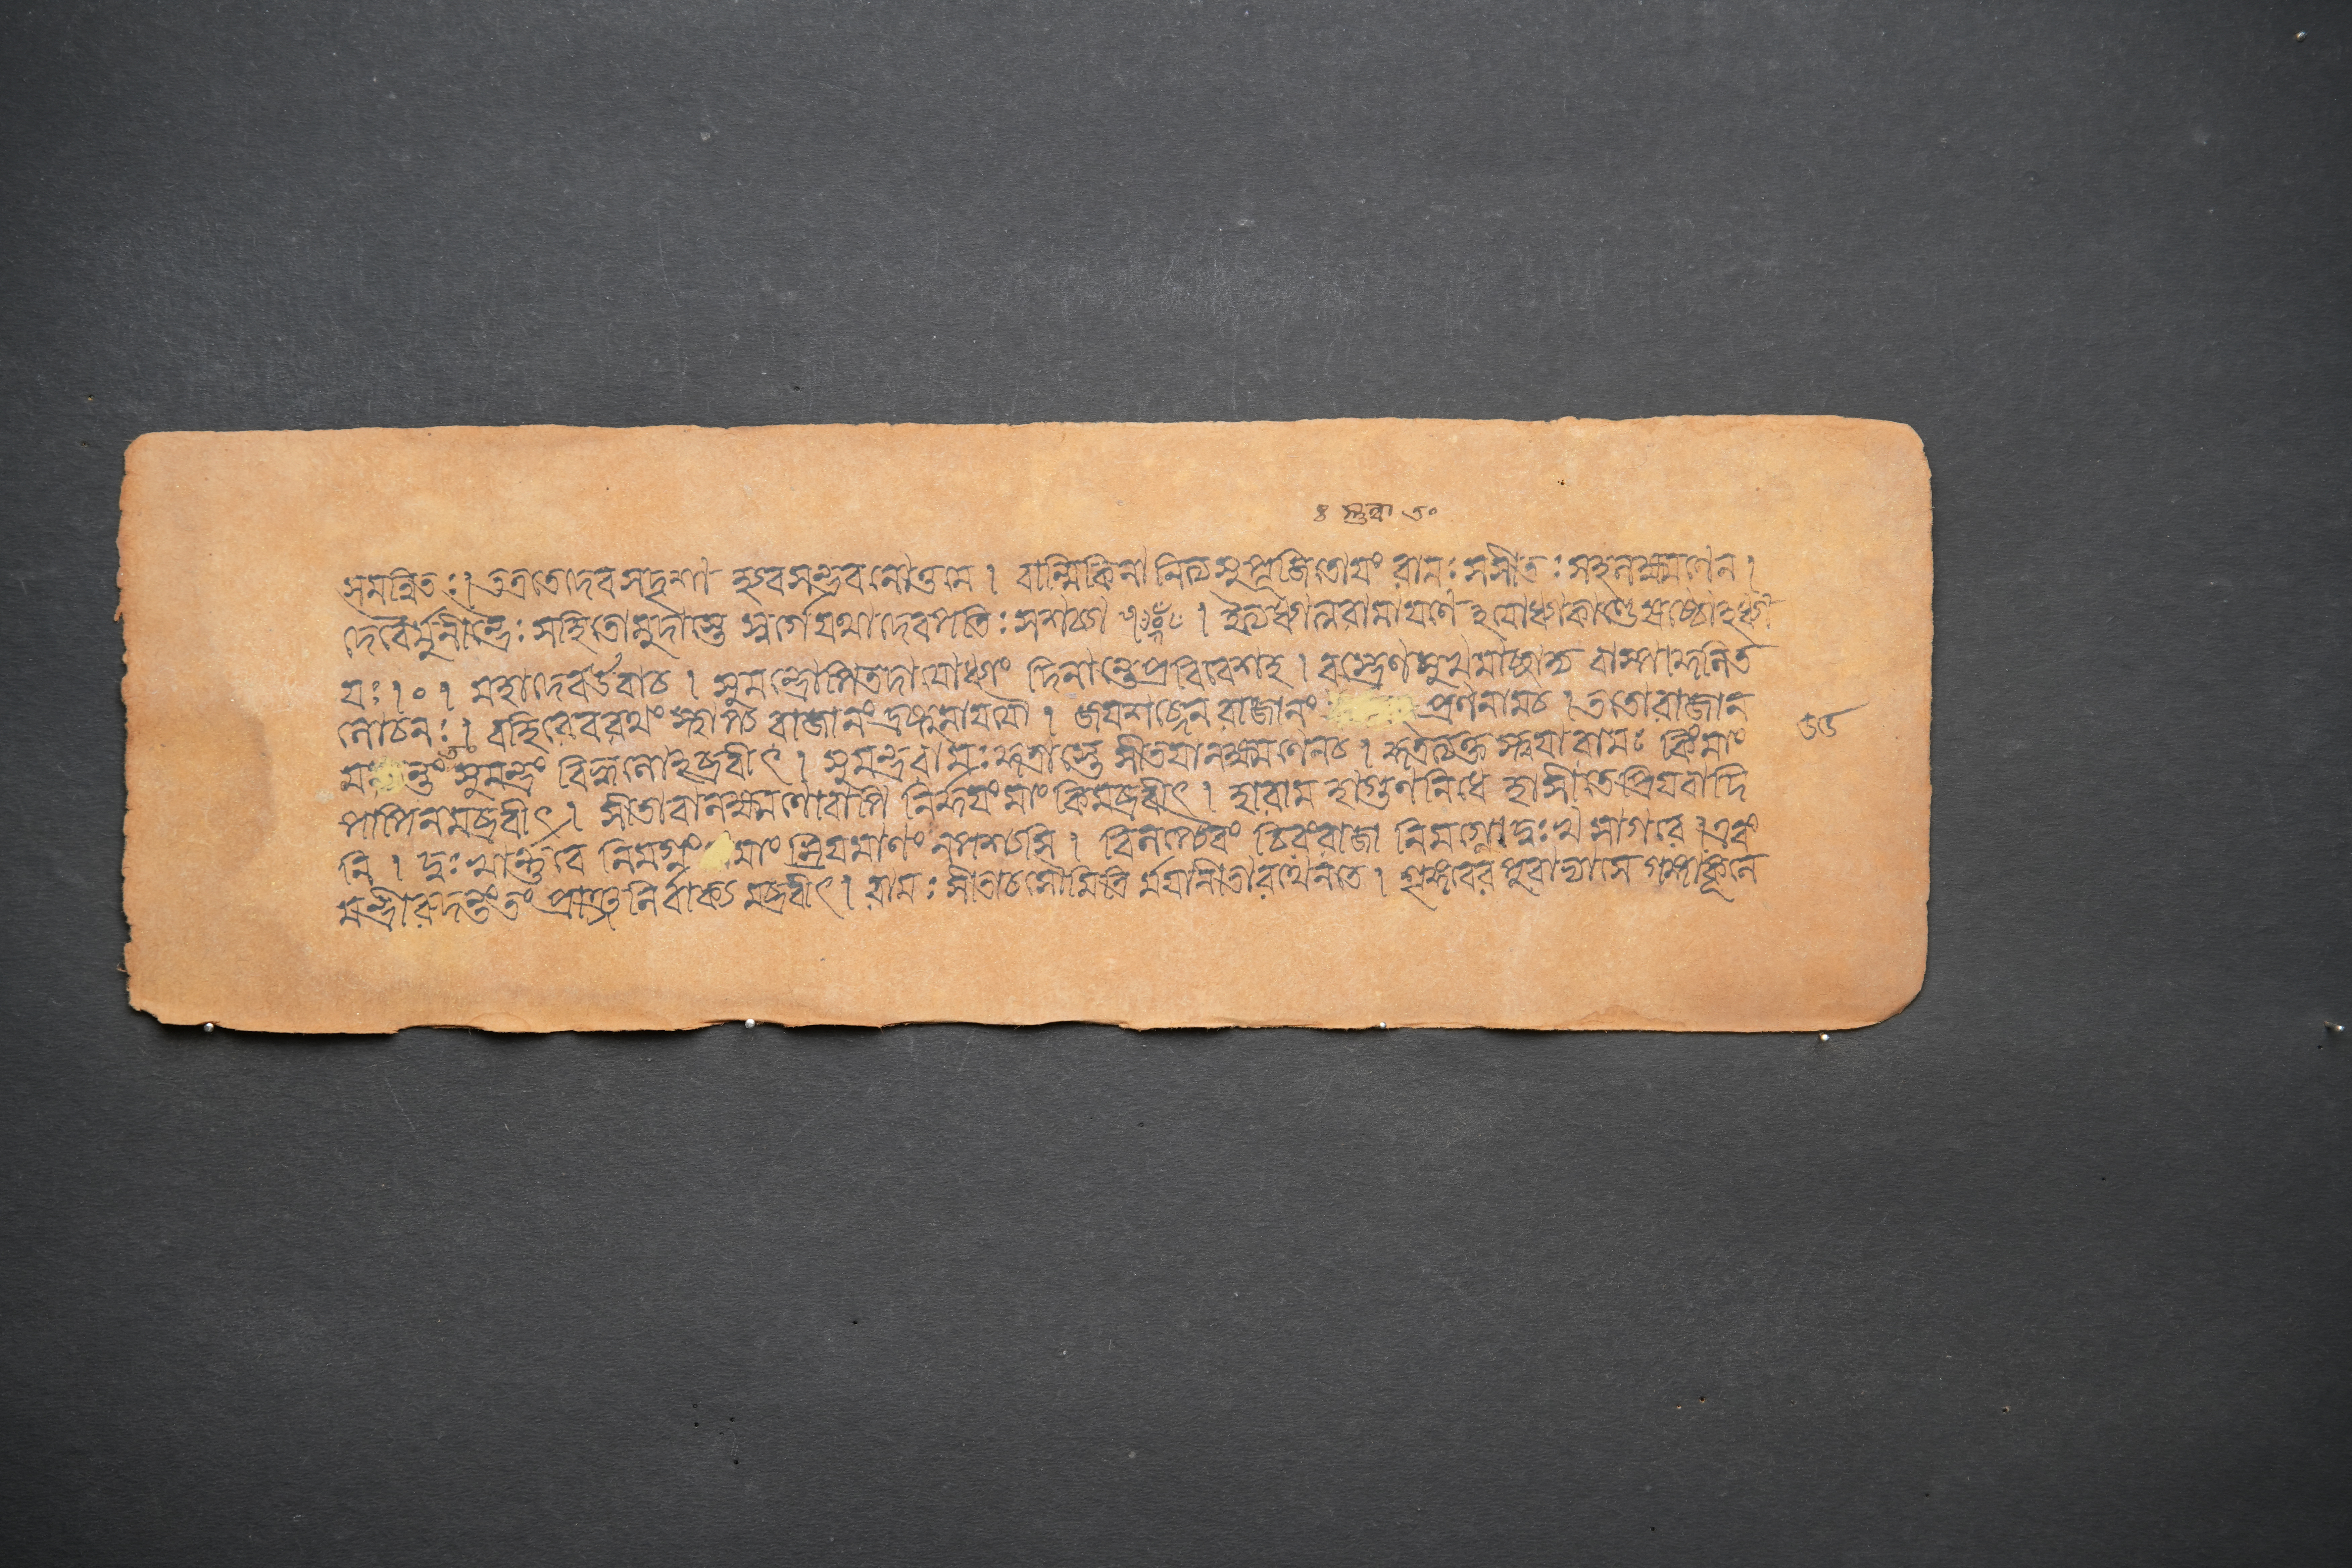 সমন্বিতঃ। তত্রতেদেবসদৃশা হ্যবসন্ভবনোত্তমে। বাল্মিকিনা নিত্যসুপূজিতোযং রামঃ সসীতঃ সহলক্ষ্মণেন।
দেবৈর্মুনীন্দ্রৈঃ সহিতোমুদাস্তে স্বর্গেযথাদেবপতিঃ সশচ্যা । ইত্যধ্যাত্মরামাযণে ঽযোধ্যাকাণ্ডেষষ্ঠোঽধ্যা
যঃ।০। মহাদেবউবাচ। সুমন্ত্রোপিতদাযোধ্যাং দিনান্তেপ্রবিবেশহ। বস্ত্রেণমুখমাচ্ছাদ্য বাষ্পাকুলিত
লোচনঃ। বহিরেবরথং স্থাপ্য রাজানংদ্রষ্টুমাযযৌ। জযশব্দেন রাজানং প্রণনামচ। ততোরাজান
সুমন্ত্রং বিহ্বলোঽব্রবীৎ। সুমন্ত্ররামঃকুত্রাস্তে সীতযালক্ষ্মণেনচ। কুত্রত্যক্তস্ত্বযারামঃ কিংমাং
পাপিনমব্রবীৎ। সীতাবালক্ষ্মণোবাপি নির্দ্দযংমাং কিমব্রবীৎ। হারাম হাগুণনিধে হাসীতেপ্রিযবাদি
নি। দুঃখার্ণ্ণবে নিমগ্নং মাং ম্রিযমাণং নপশ্যসি। বিলপ্যৈবং চিরংরাজা নিমগ্নোদুঃখসাগরে। এবং
মন্ত্রীরুদন্তংতং প্রাঞ্জলির্বাক্যমব্রবীৎ। রামঃ সীতাচসৌমিত্রি র্মযানীতারথেনতে। শৃঙ্গবেরপুরাভ্যাসে গঙ্গাকূলে